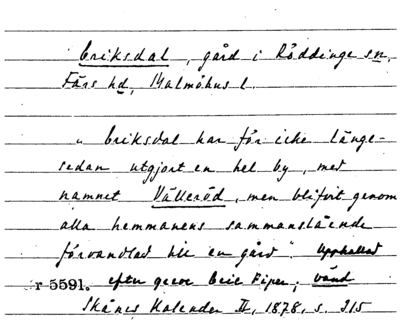 Eriksdal, gård i Röddinge sn,
Färs hd, Malmöhus l.
"Eriksdal har för icke länge-
sedan utgjort en hel by, med
namnet Välleröd, men blifvit genom
alla hemmanens sammanslående
förvandlad till en gård". Uppkallad
r 5591. efter greve Eric Piper;
Skånes Kalender II, 1878, s. 315